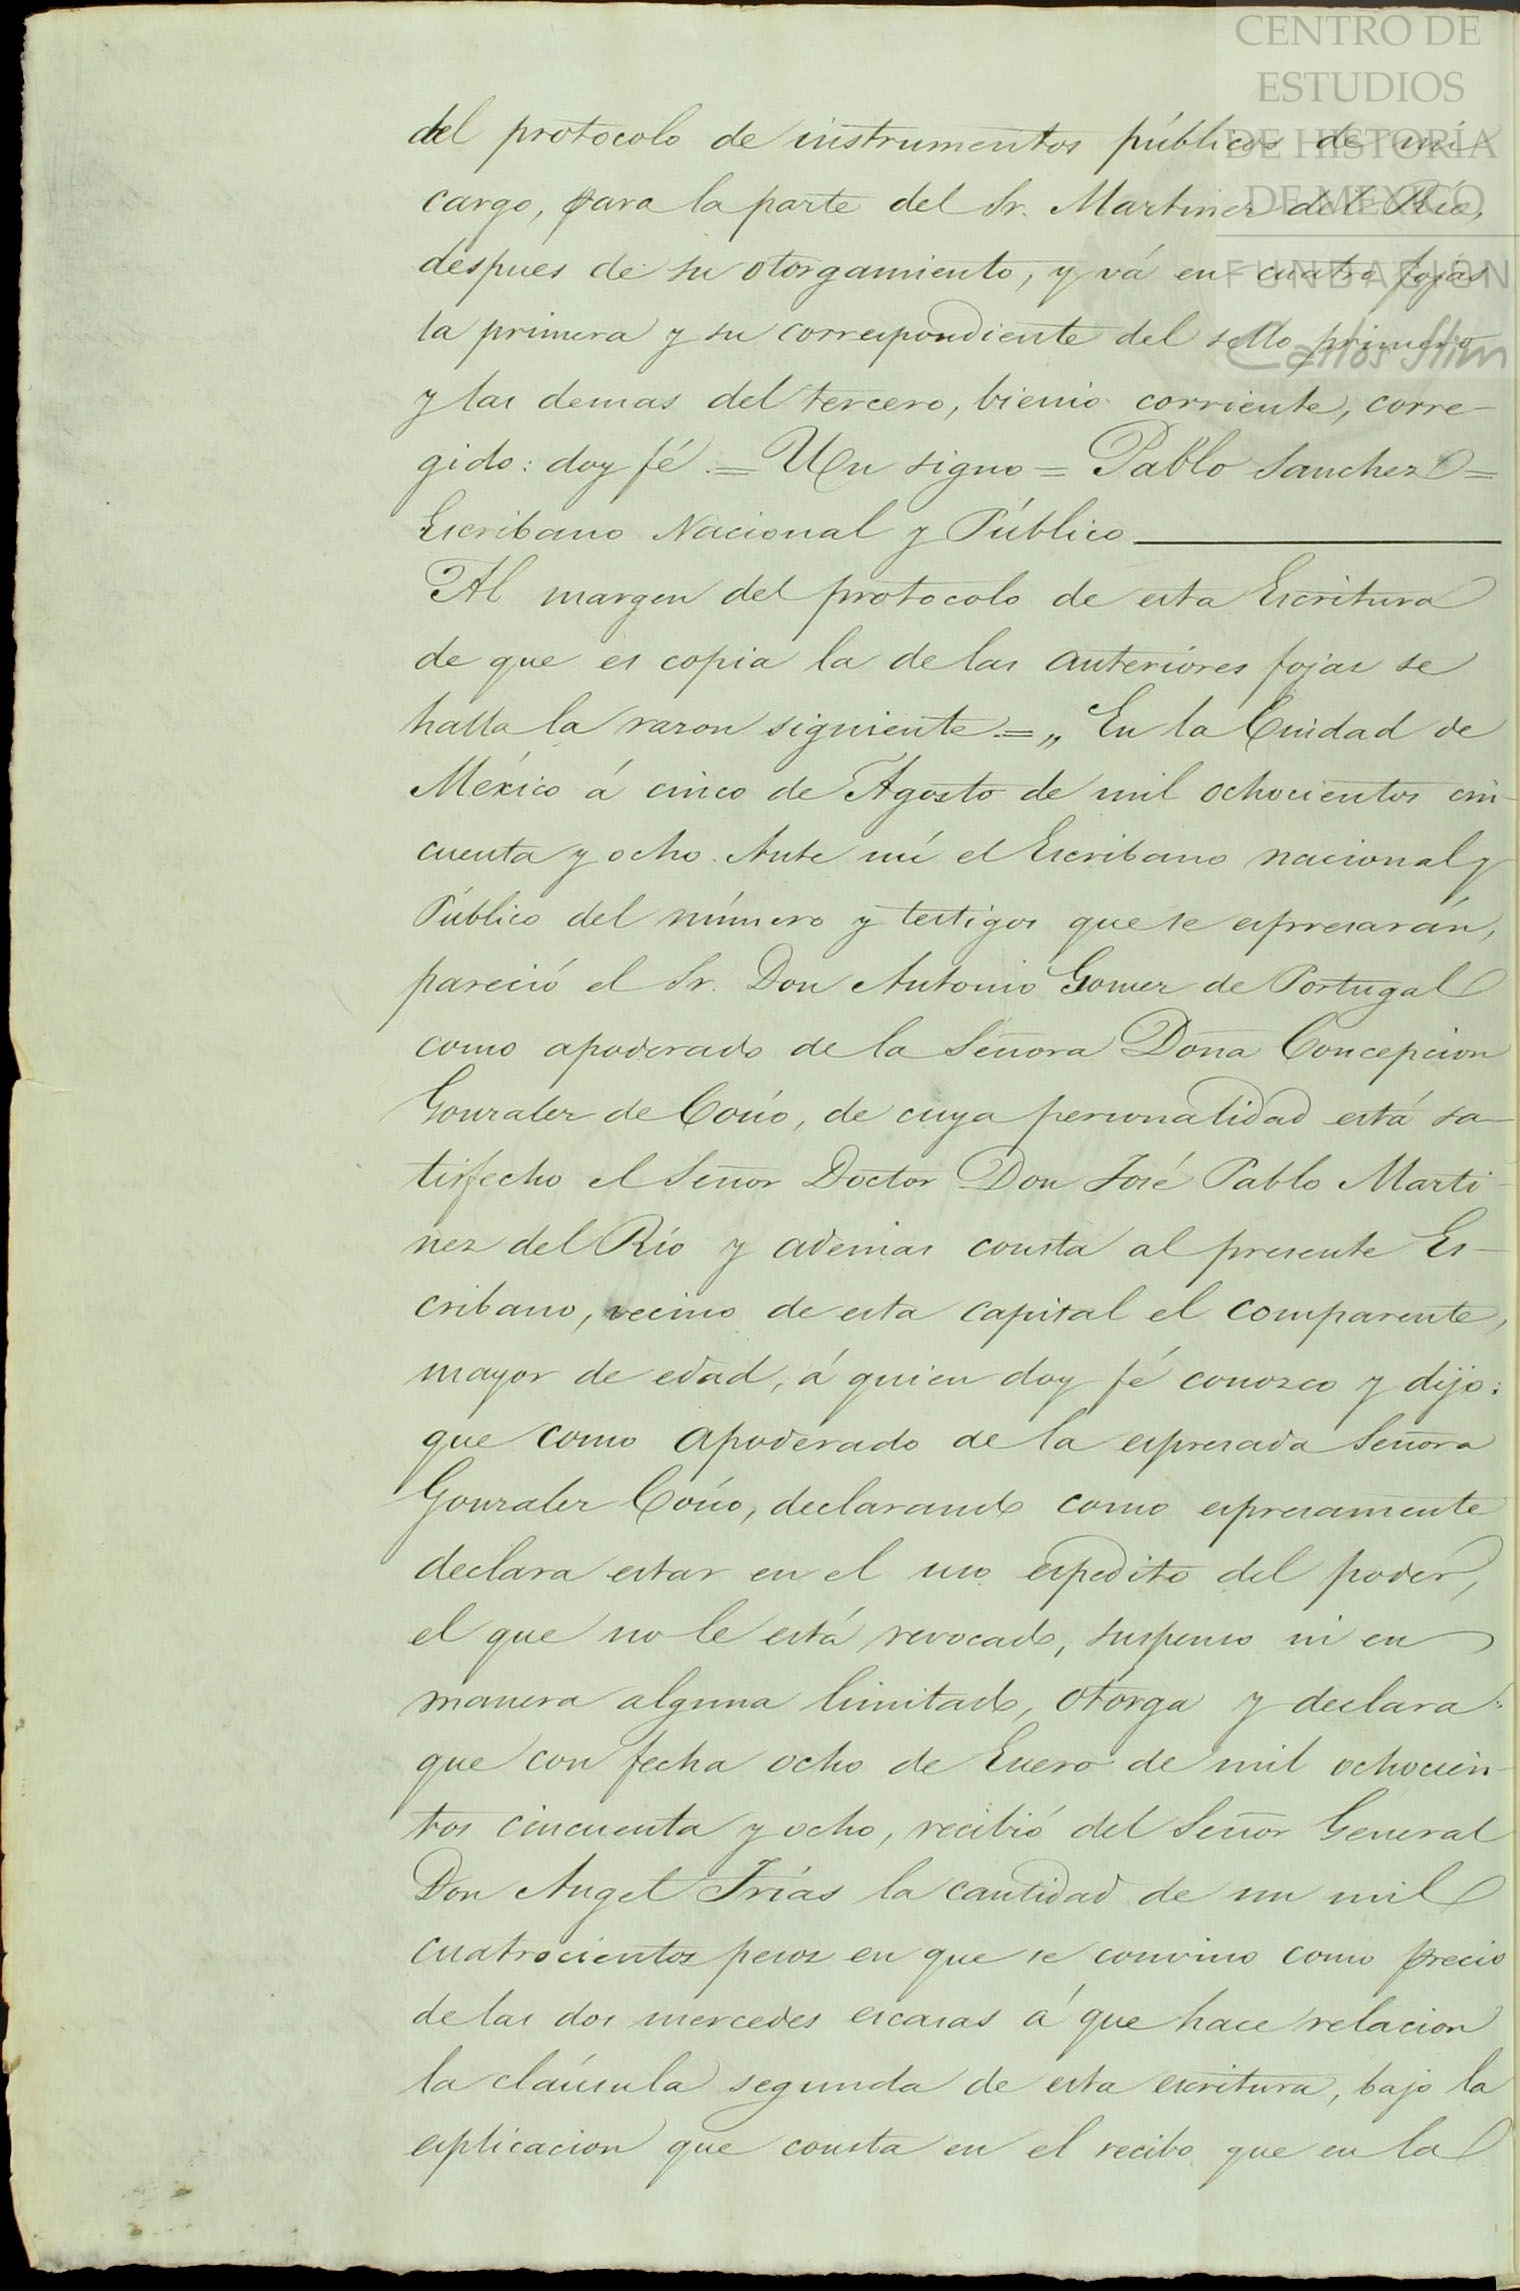 CENTRO DE
ESTUDIOS
DE HISTORIA
DE MEXICO
FUNDACIÓN
Carlos Slim
del protocolo de instrumentos públicos de mi
cargo, para la parte del Sr. Martinez del Rio,
despues de su otorgamiento, y vá en cuatro fojas
la primera y su correspondiente del sello primero
y las demas del tercero, bienio corriente, corre-
gido: doy fé.= Un signo = Pablo Sanchez =
Escribano Nacional y Público
Al margen del protocolo de esta Escritura
de que es copia la de las anteriores fojas se
halla la razon siguiente.= „ En la Ciudad de
México á cinco de Agosto de mil ochocientos cin-
cuenta y ocho. Ante mí el Escribano nacional y
Público del número y testigos que se espresarán,
pareció el Sr. Don Antonio Gomez de Portugal
como apoderado de la Señora Doña Concepcion
Gonzalez de Cosío, de cuya personalidad está sa-
tisfecho el Señor Doctor Don José Pablo Marti-
nez del Rio y ademas consta al presente Es-
cribano, vecino de esta capital el comparente,
mayor de edad, á quien doy fé conozco y dijo:
que como apoderado de la espresada Señora
Gonzalez Cosío, declarando como espresamente
declara estar en el uso espedito del poder,
el que no le está revocado, suspenso ni en
manera alguna limitado, otorga y declara:
que con fecha ocho de Enero de mil ochocien-
tos cincuenta y ocho, recibió del Señor General
Don Angel Frías la cantidad de un mil
cuatrocientos pesos en que se convino como precio
de las dos mercedes escasas á que hace relacion
la cláusula segunda de esta escritura, bajo la
esplicacion que consta en el recibo que en la